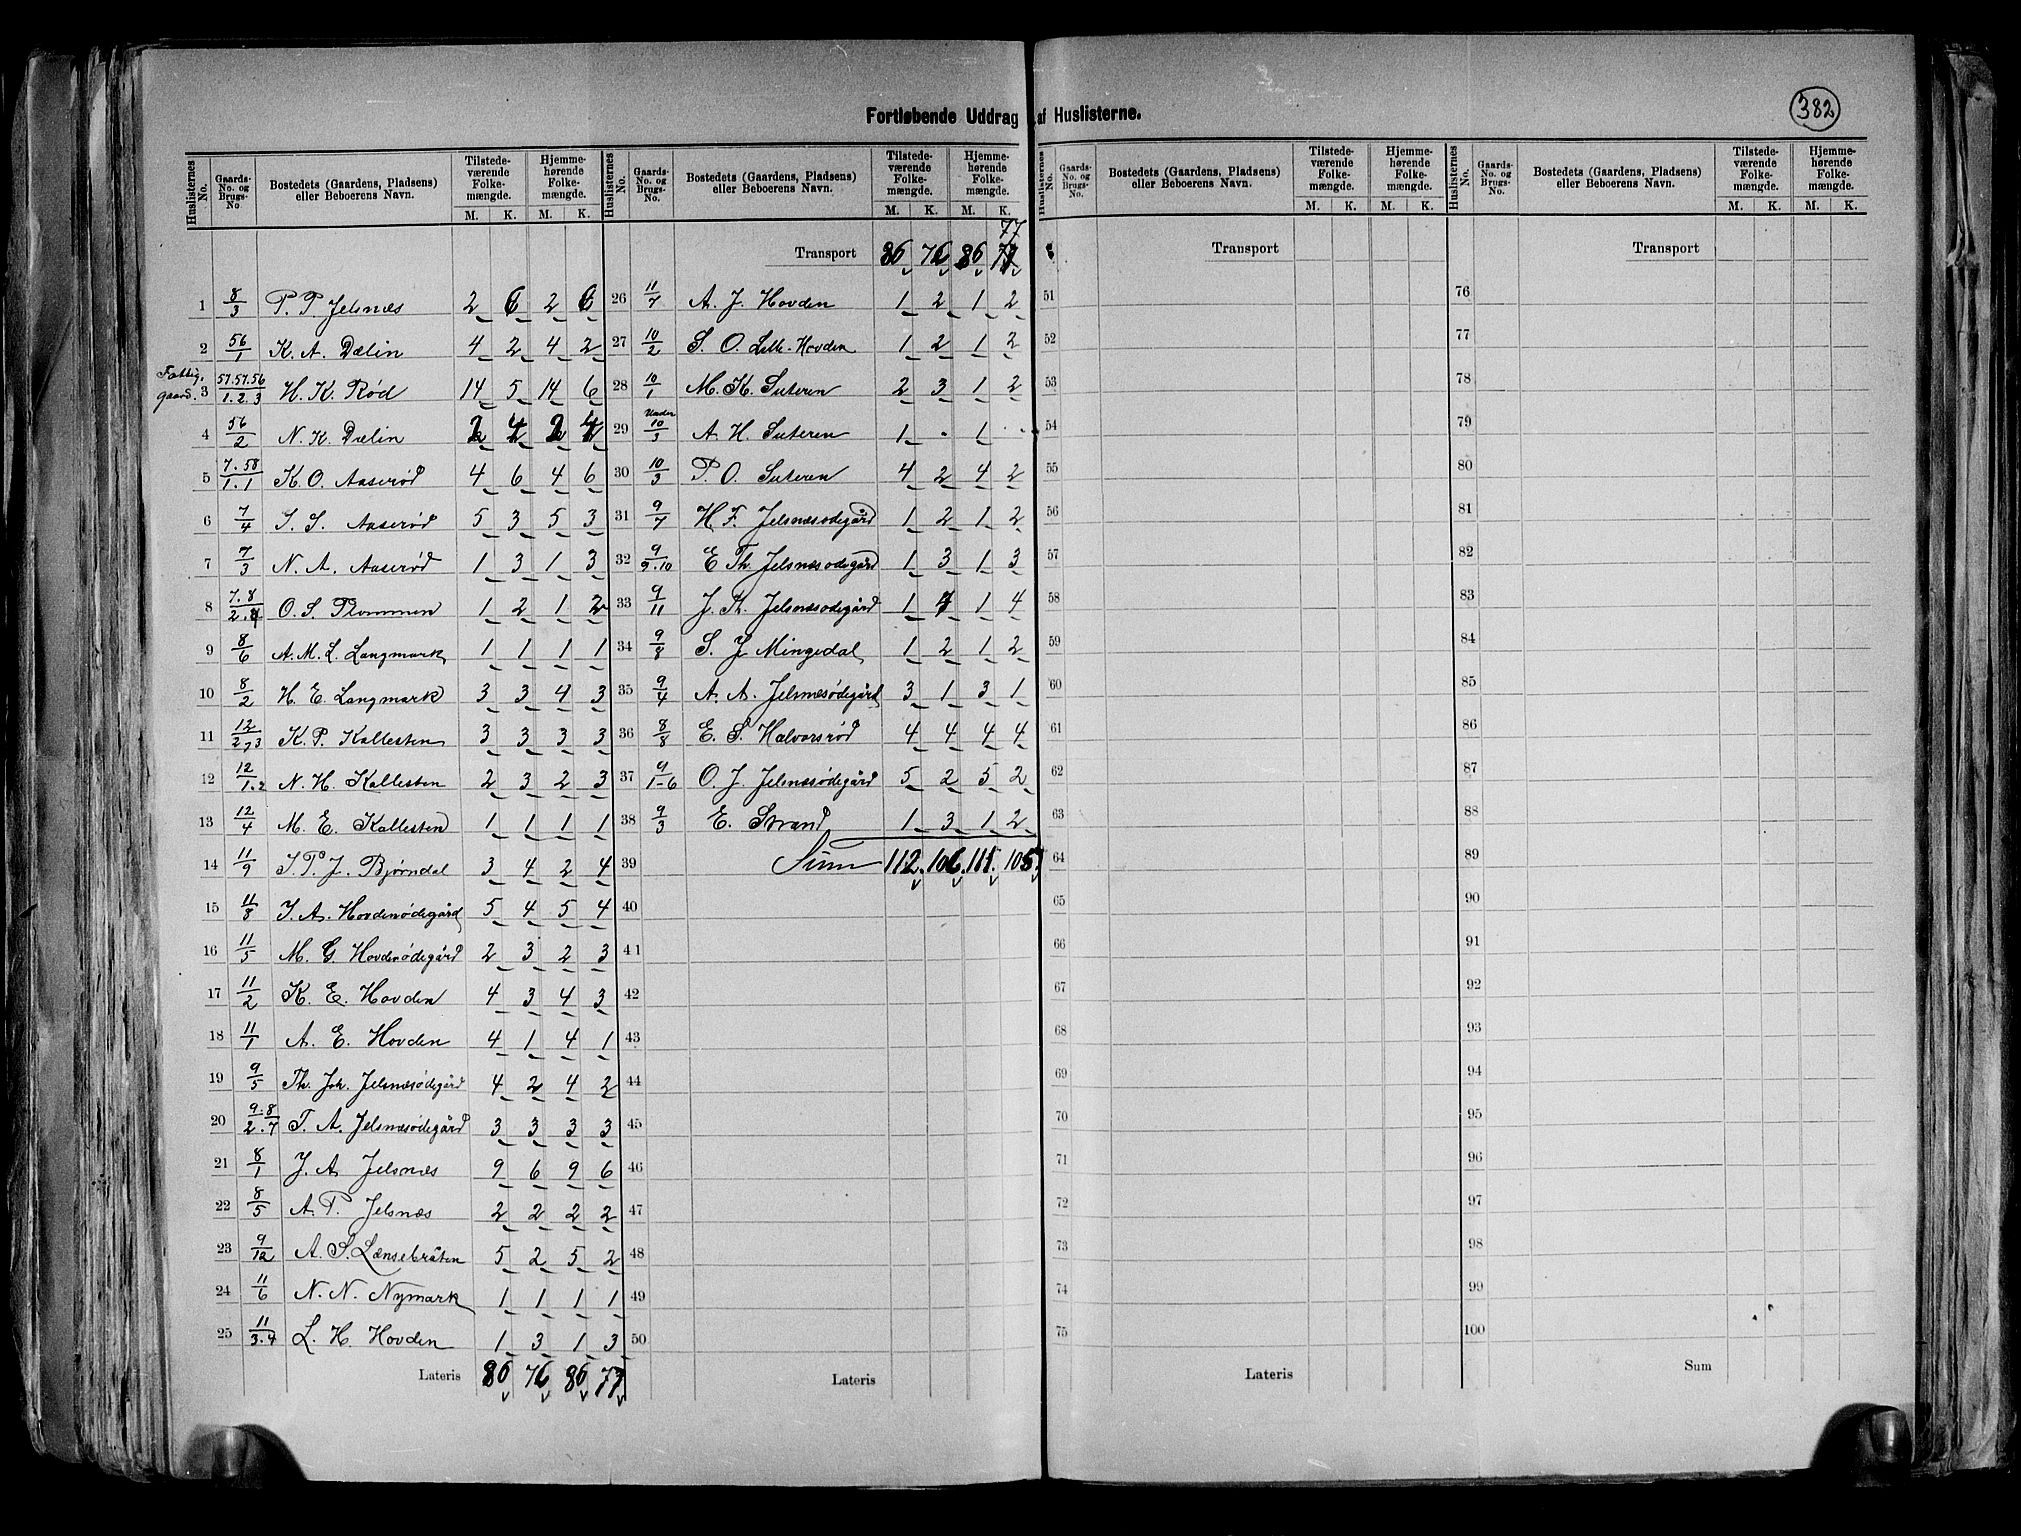 382
Fortløbende Uddrag af Huslisterne.
Huslisternes No. | Gaards-No. og Brugs-No. | Bostedets (Gaardens, Pladsens) eller Beboerens Navn. | Tilstedeværende Folkemængde. M. K. | Hjemmehørende Folkemængde. M. K.
1 8/3 P. P. Jelsnæs 2 6 2 6
2 56/1 K. A. Dælin 4 2 4 2
Fattiggaard. 3 57.57.56/1.2.3 H. K. Rød 14 5 14 6
4 56/2 N. K. Dælin 2 4 2 4
5 7.58/1.1 K. O. Aaserød 4 6 4 6
6 7/4 S. S. Aaserød 5 3 5 3
7 7/3 N. A. Aaserød 1 3 1 3
8 7.8/2.4 O. S. Plommen 1 2 1 2
9 8/6 A. M. L. Langmark 1 1 1 1
10 8/2 H. E. Langmark 3 3 4 3
11 12/2,3 K. P. Kallesten 3 3 3 3
12 12/1.2 N. H. Kallesten 2 3 2 3
13 12/4 M. E. Kallesten 1 1 1 1
14 11/9 S. P. J. Bjørndal 3 4 2 4
15 11/8 J. A. Hovdenødegård 5 4 5 4
16 11/5 M. G. Hovdenødegård 2 3 2 3
17 11/2 K. E. Hovden 4 3 4 3
18 11/1 A. E. Hovden 4 1 4 1
19 9/5 Th. Joh. Jelsnæsødegård 4 2 4 2
20 9.8/2.7 T. A. Jelsnæsødegård 3 3 3 3
21 8/1 J. A. Jelsnæs 9 6 9 6
22 8/5 A. P. Jelsnæs 2 2 2 2
23 9/12 A. S. Lænsebråten 5 2 5 2
24 11/6 N. N. Nymark 1 1 1 1
25 11/3.4 L. H. Hovden 1 3 1 3
Lateris 86 76 86 77
Huslisternes No. | Gaards-No. og Brugs-No. | Bostedets (Gaardens, Pladsens) eller Beboerens Navn. | Tilstedeværende Folkemængde. M. K. | Hjemmehørende Folkemængde. M. K.
77
Transport 86 76 86 77
26 11/7 A. J. Hovden 1 2 1 2
27 10/2 S. O. Lille-Hovden 1 2 1 2
28 10/1 M. K. Suteren 2 3 1 2
29 Under 10/3 A. H. Suteren 1 · 1 ·
30 10/3 P. O. Suteren 4 2 4 2
31 9/7 H. F. Jelsnæsødegård 1 2 1 2
32 9/9.10 E Th. Jelsnæsødegård 1 3 1 3
33 9/11 J. Th. Jelsnæsødegård 1 4 1 4
34 9/8 S. J Mingedal 1 2 1 2
35 9/4 A. A. Jelsnæsødegård 3 1 3 1
36 8/8 E. S. Halvorsrød 4 4 4 4
37 9/1-6 O. J. Jelsnæsødegård 5 2 5 2
38 9/3 E. Strand 1 3 1 2
39 Sum 112 106 111 105
40
41
42
43
44
45
46
47
48
49
50
Lateris
Huslisternes No. | Gaards-No. og Brugs-No. | Bostedets (Gaardens, Pladsens) eller Beboerens Navn. | Tilstedeværende Folkemængde. M. K. | Hjemmehørende Folkemængde. M. K.
Transport
51
52
53
54
55
56
57
58
59
60
61
62
63
64
65
66
67
68
69
70
71
72
73
74
75
Lateris
Huslisternes No. | Gaards-No. og Brugs-No. | Bostedets (Gaardens, Pladsens) eller Beboerens Navn. | Tilstedeværende Folkemængde. M. K. | Hjemmehørende Folkemængde. M. K.
Transport
76
77
78
79
80
81
82
83
84
85
86
87
88
89
90
91
92
93
94
95
96
97
98
99
100
Sum